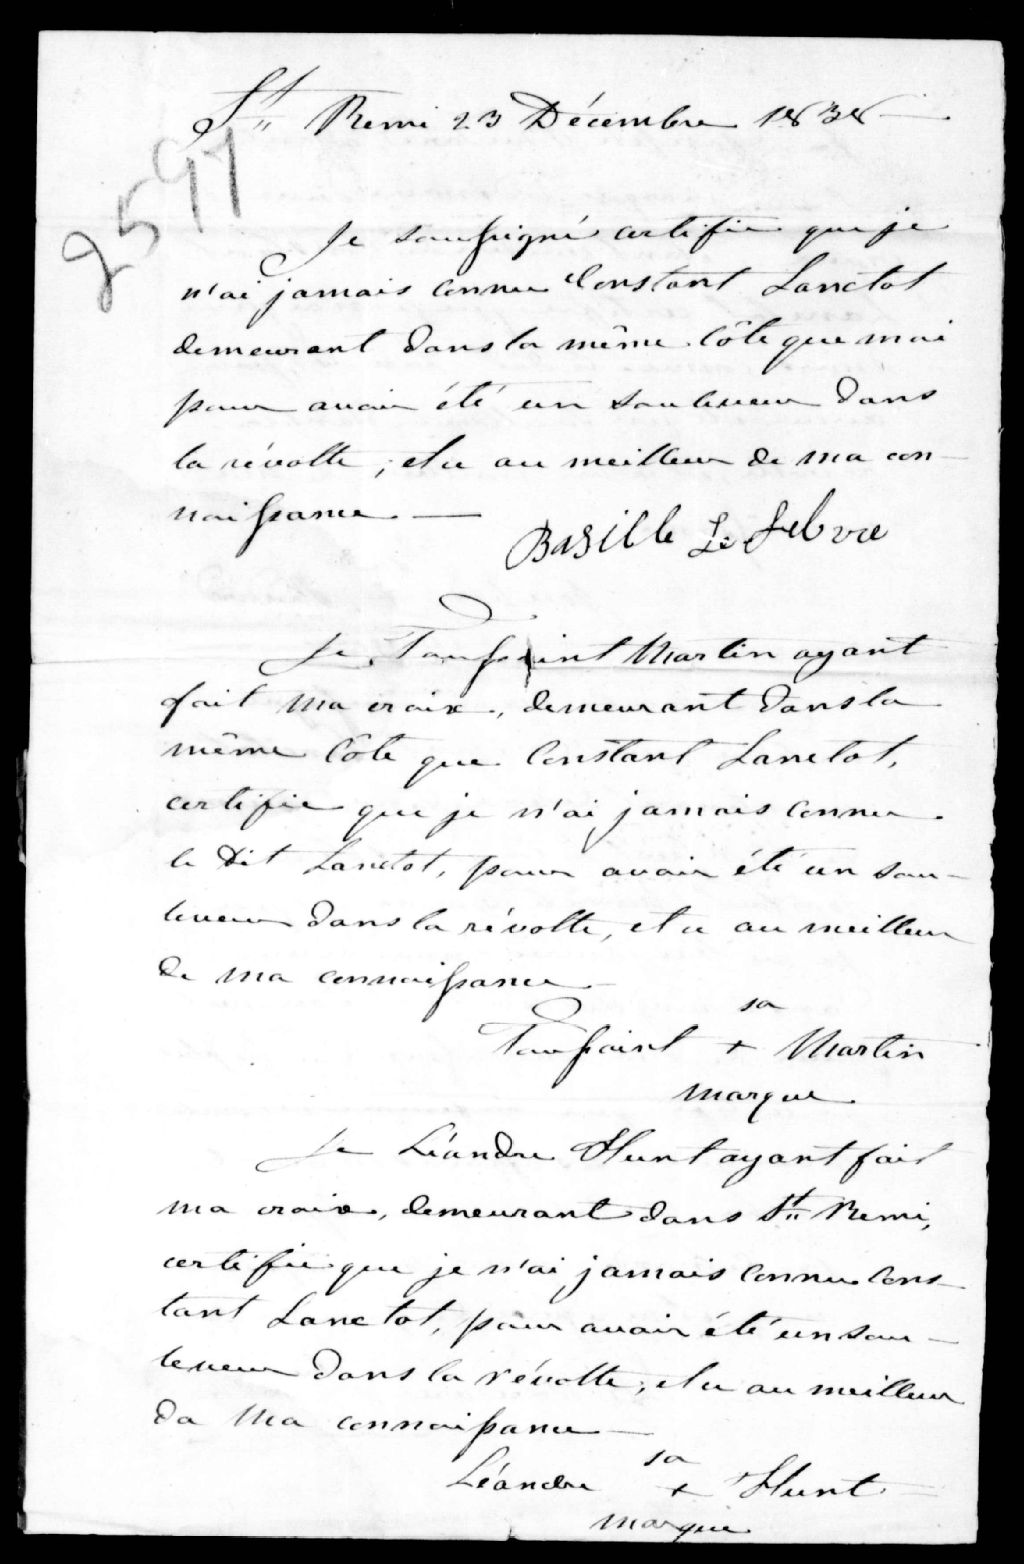 St Remi 23 Décembre 1838 —
2591
Je soussigné certifie que je
n'ai jamais connu Constant Lanctot
demeurant dans la même Côte que moi
pour avoir été un souleveur dans
la révolte, et ce au meilleur de ma con-
naissance —
Basille Le febvre
Je Toussaint Martin ayant
fait ma croix, demeurant dans la
même Côte que Constant Lanctot,
certifie que je n'ai jamais connu
le dit Lanctot, pour avoir été un sou-
leveur dans la révolte, et ce au meilleur
de ma connaissance —
sa
Toussaint + Martin
marque
Je Léandre Hunt ayant fait
ma croix, demeurant dans St Remi,
certifie que je n'ai jamais connu Cons-
tant Lanctot, pour avoir été un sou-
leveur dans la révolte, et ce au meilleur
da ma connaissance —
sa
Léandre + Hunt
marque